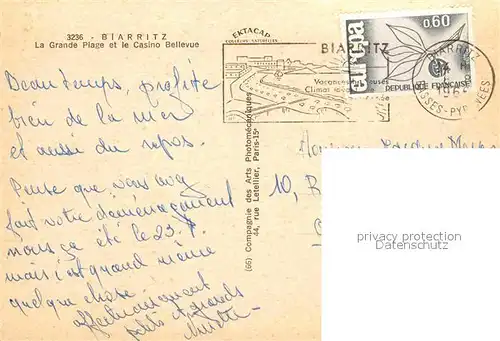 3236 - BIARRITZ
La Grande Plage et le Casino Bellevue
EKTACAP
COULEURS NATURELLES
BIARRITZ
Vacances
Climat
europa
0,60
REPUBLIQUE FRANÇAISE
BIARRITZ
BASSES-PYRENEES
(66) Compagnie des Arts Photomécaniques
44, rue Letellier, Paris-15e
Beau temps, profite
bien de la mer
et aussi du repos.
Pense que vous avez
fait votre déménagement
nous ça été le 23.
mais c'est quand même
quelque chose
affectueusement
petits et grands
10,
privacy protection
Datenschutz